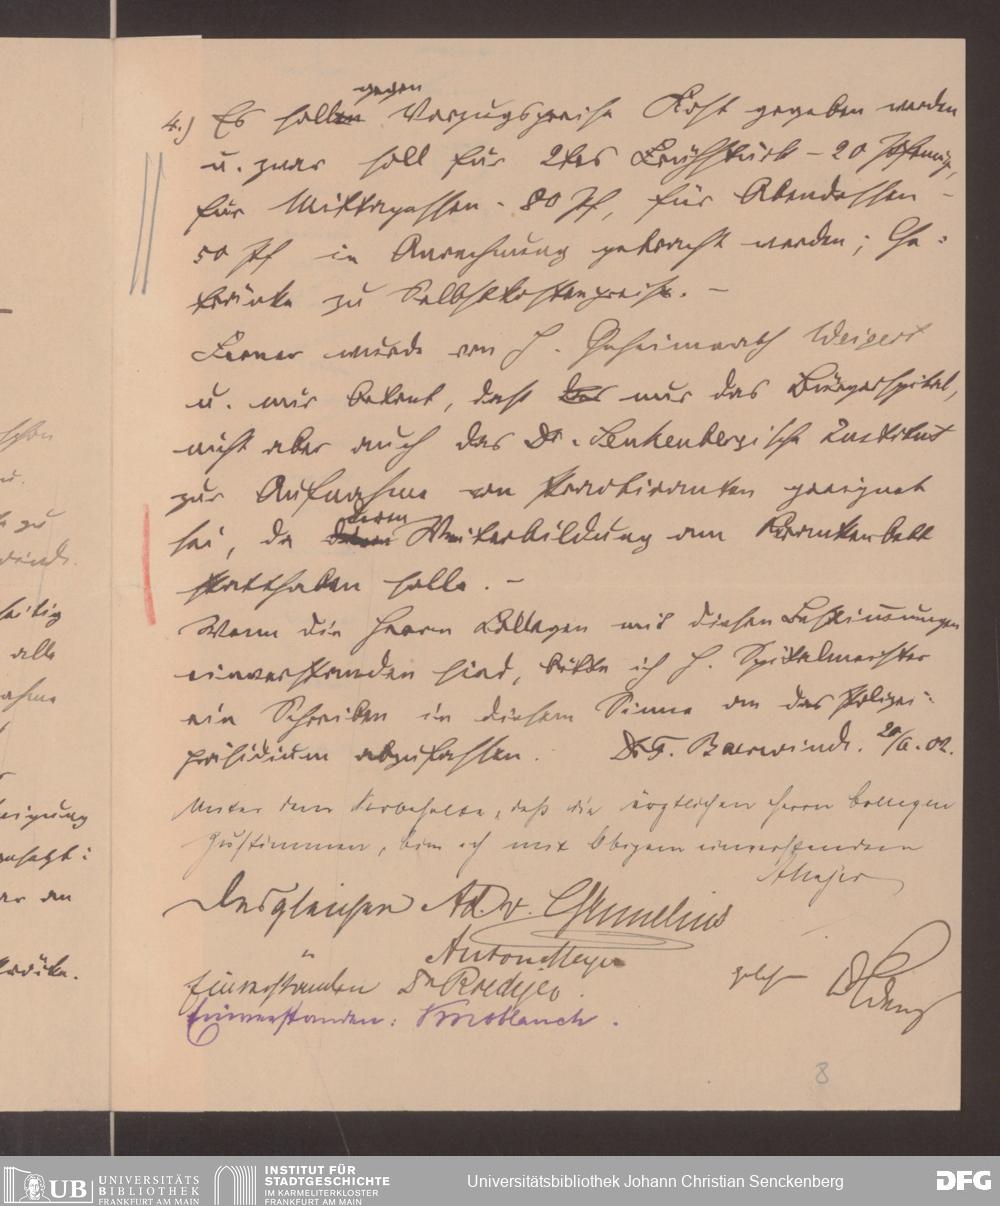 gegen
4.) Es soll Vorzugspreise Kost gegeben werden
u. zwar soll für 2tes Frühstück – 20 Pfennig,
für Mittagessen - 80 Pf, für Abendessen -
50 Pf in Anrechnung gebracht werden; Ge-
tränke zu Selbstkostenpreise. –
Ferner wurde von H. Geheimrath Weigert
u. mir betont, dass nur das Bürgerspital,
nicht aber auch das Dr. Senkenbergische Institut
zur Aufnahme von Practicanten geeignet
sei, da deren Weiterbildung am Krankenbett
statthaben solle. –
Wenn die Herren Collegen mit diesen Bestimmungen
einverstanden sind, bitte ich H. Spitalmeister
ein Schreiben in diesem Sinne an das Polizei-
präsidium abzufassen. Dr. F. Baerwindt. 20/6.02.
Unter dem Vorbehalte, daß die ärztlichen Herrn Collegen
zustimmen, bin ich mit Obigem einverstanden
AMeyer
Desgleichen Ad. v. Grunelius
" Anton Meyer
Einverstanden Dr
gelesen
Einverstanden: Knoblauch.
8
UB UNIVERSITÄTS
BIBLIOTHEK
FRANKFURT AM MAIN
INSTITUT FÜR
STADTGESCHICHTE
IM KARMELITERKLOSTER
FRANKFURT AM MAIN
Universitätsbibliothek Johann Christian Senckenberg
DFG